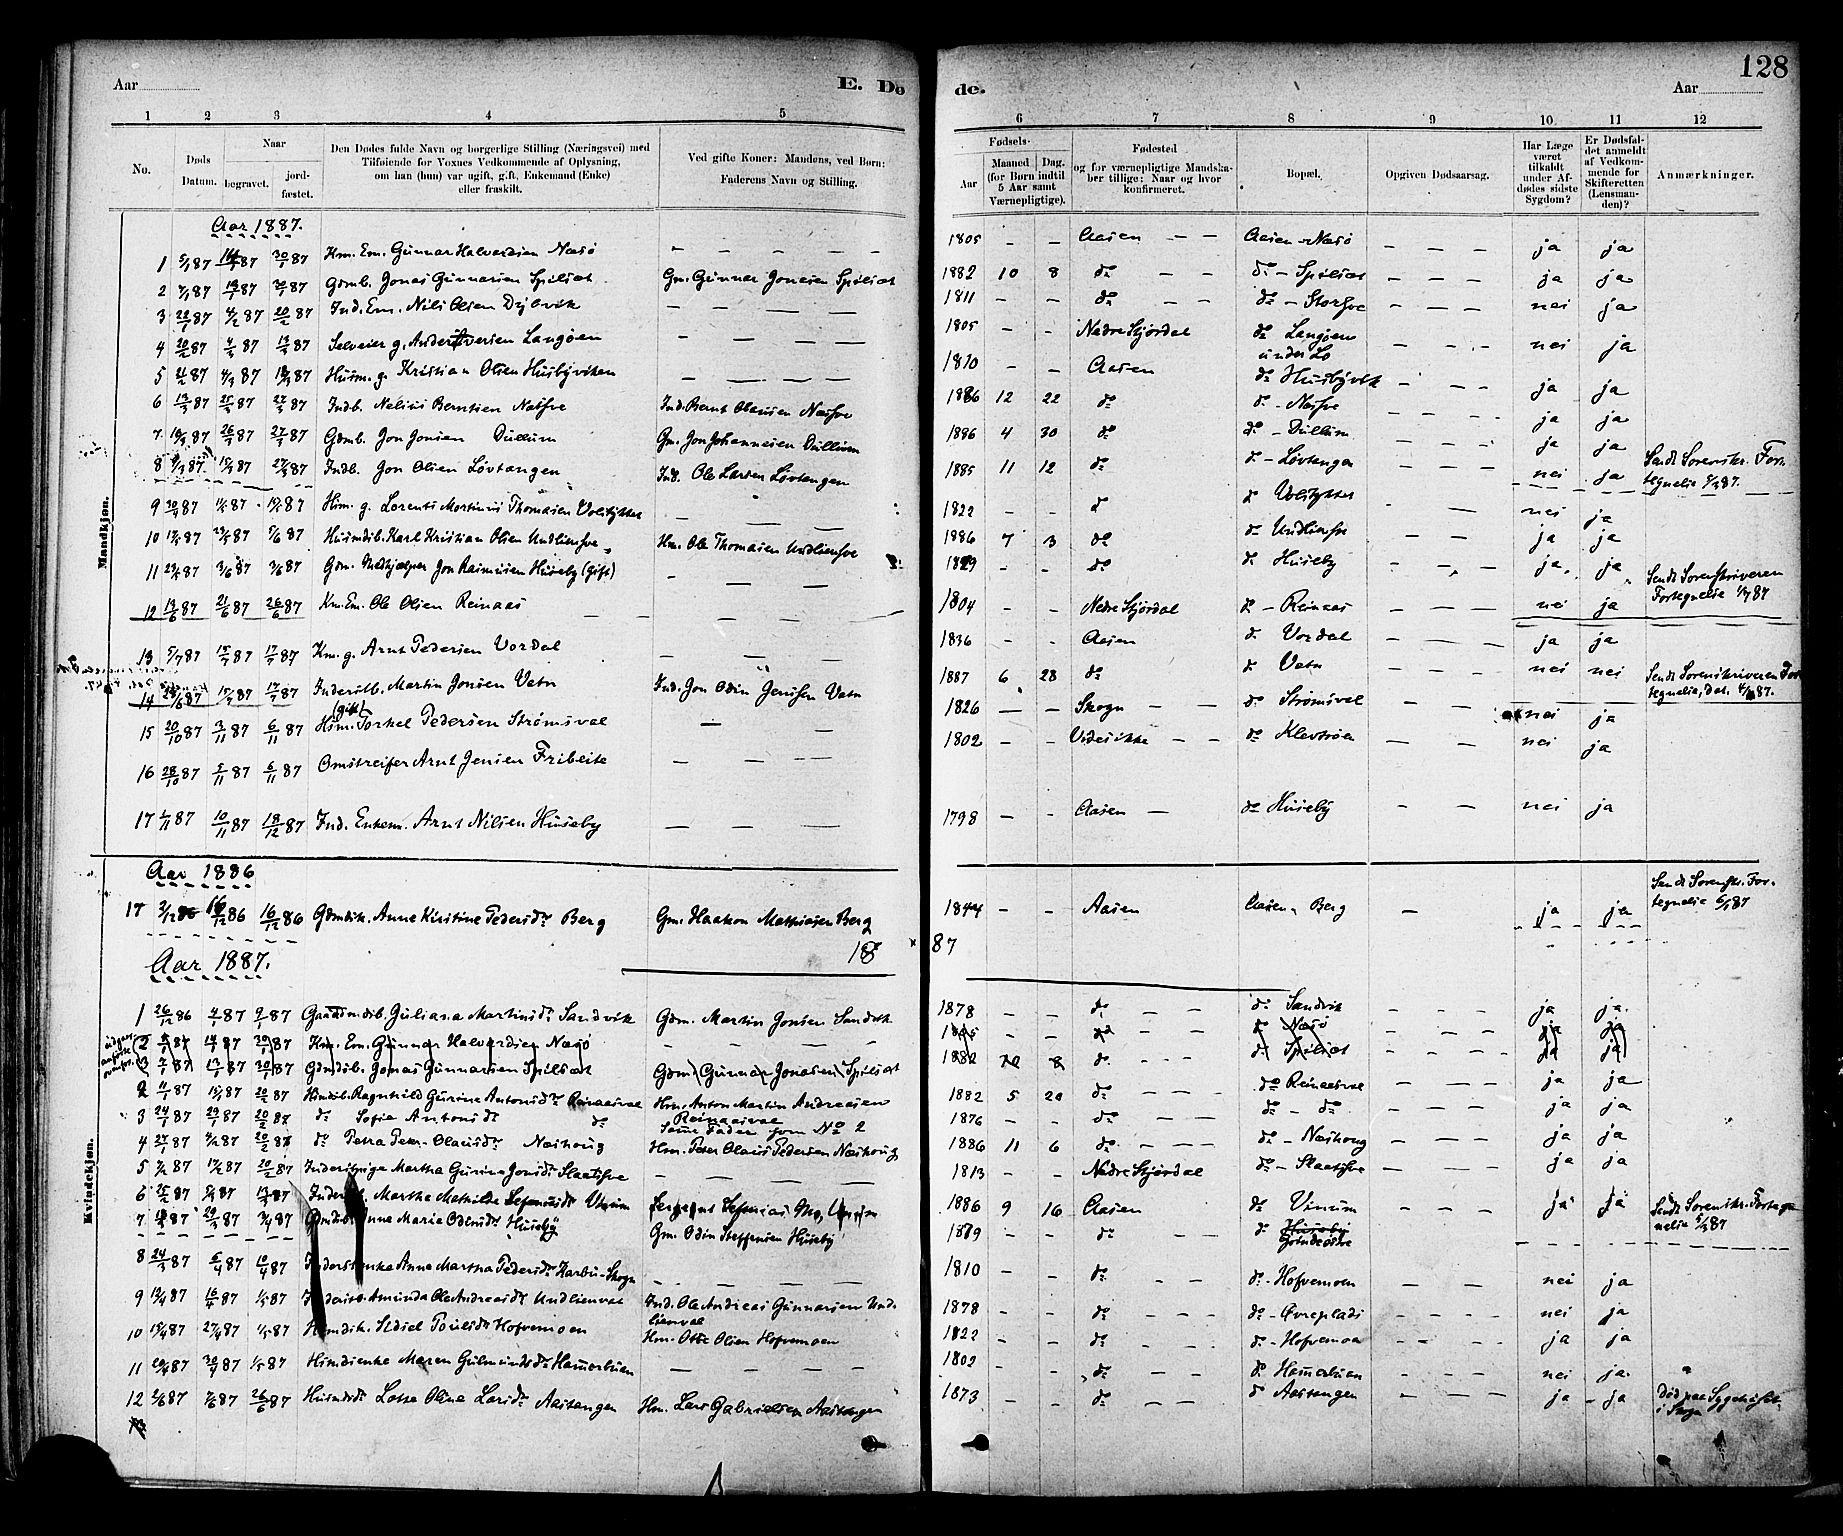 128
Aar E. Dö de. Aar
1 2 3 4 5 6 7 8 9 10 11 12
No. Døds Datum. Naar begravet. jord-fæstet. Den Dødes fulde Navn og borgerlige Stilling (Næringsvei) med Tilføiende for Voxnes Vedkommende af Oplysning, om han (hun) var ugift, gift, Enkemand (Enke) eller fraskilt. Ved gifte Koner: Mandens, ved Børn: Faderens Navn og Stilling. Fødsels- Aar Maaned (for Børn indtil 5 Aar samt Værnepligtige). Dag. Fødested og for værnepligtige Mandskaber tillige: Naar og hvor konfirmeret. Bopæl. Opgiven Dødsaarsag. Har Læge været tilkaldt under Afdødes sidste Sygdom? Er Dødsfaldet anmeldt af Vedkommende for Skifteretten (Lensmanden)? Anmærkninger.
Mandkjøn.
Aar 1887.
1 5/1 87 14/1 87 30/1 87 Km. Em. Gunnar Halvardsen Næsø — — — 1805 — — Aasen — — Aasen - Næsø — — — ja ja
2 7/1 87 13/1 87 30/1 87 Gdmb. Jonas Gunnarsen Spilset Gm. Gunnar Jonasen Spilset 1882 10 8 do — — do - Spilset — — — ja ja
3 22/1 87 4/2 87 20/2 87 Ind. Em. Nils Olsen Dybvik — — — 1811 — — do — — do - Storhve — — — nei ja
4 20/2 87 4/3 87 13/3 87 Selveier g. Anders Iversen Langøen — — — 1805 — — Nedre Stjørdal do Langøen under Lo — — — nei ja
5 21/2 87 4/3 87 13/3 87 Husm. g. Kristian Olsen Husbyviken — — — 1810 — — Aasen do Husbyvik — — — ja ja
6 13/3 87 25/3 87 27/3 87 Indb. Nelius Berntsen Næshve Ind. Bernt Olausen Næshve 1886 12 22 do do - Næshve — — — ja ja
7 16/3 87 26/3 87 27/3 87 Gdmb. Jon Jonsen Dullum Gm. Jon Johannesen Dullum 1886 4 30 do do - Dullum — — — ja ja
8 9/3 87 15/3 87 27/3 87 Indb. Jon Olsen Løvtangen Ind. Ole Larsen Løvtangen 1885 11 12 do do - Løvtangen nei ja Sendt Sorenskr. Fortegnelse 5/4 87.
9 30/4 87 11/5 87 19/5 87 Hsm. g. Lorents Martinus Thomasen Volsløkken — — — 1822 — — do do Volsløkken — — nei ja
10 17/5 87 29/5 87 5/6 87 Husmdsb. Karl Kristian Olsen Undlienhve Hm. Ole Thomasen Undlienhve 1886 7 3 do do Undlienhve ja ja
11 23/5 87 3/6 87 3/6 87 Gdm. Medhjælper Jon Rasmusen Huseby (gift) — — — 1829 — — do do Huseby — — ja ja Sendt Sorenskriveren Fortegnelse 1/7 87
12 13/6 87 21/6 87 26/6 87 Km. Em. Ole Olsen Reinaas — — 1804 — — Nedre Stjørdal do - Reinaas — — — nei ja
13 5/7 87 15/7 87 17/7 87 Km. g. Arnt Pedersen Vordal — — — 1836 — — Aasen do Vordal — — — ja ja
14 28/6 87 15/7 87 17/7 87 Inderstb. Martin Jonsen Vatn Ind. Jon Odin Jensen Vatn 1887 6 28 do do Vatn — — nei nei Sendt Sorenskriveren Fortegnelse, dat.
15 20/10 87 3/11 87 6/11 87 Hsm. (gift) Torkel Pedersen Strømsval — — 1826 — — Skogn — — do Strømsval — — nei ja
16 28/10 87 5/11 87 6/11 87 Omstreifer Arnt Jensen Fribeite — — — 1802 — — Vides ikke — — do Klevtrøen — — nei ja
17 1/11 87 10/11 87 18/12 87 Ind. Enkem. Arnt Nilsen Huseby — — — 1798 — — Aasen — do Huseby — — nei ja
Aar 1886
17 2/12 86 16/12 86 16/12 86 Gdmdsk. Anne Kirstine Pedersdr Berg Gm. Haakon Mathiasen Berg 1844 — — Aasen Aasen, Berg — ja ja Sendt Sorenskr. Fortegnelse 6/1 87
Aar 1887. 18 87
Kvindekjøn.
1 26/12 86 4/1 87 9/1 87 Gaardmdsb. Guliana Martinsdr Sandvik Gdm. Martin Jonsen Sandvik 1878 — — do — — do Sandvik ja ja
2 5/1 87 14/1 87 30/1 87 Km. Em. Gunnar Halvardsen Næsø — — — 1805 — — do — — do Næsø ja ja
3 7/1 87 13/1 87 30/1 87 Gdmdsb. Jonas Gunnarsen Spilset Gdm. Gunnar Jonasen Spilset 1882 10 8 do — — do Spilset ja ja
2 11/1 87 15/1 87 20/2 87 Hsmdsb. Ragnhild Gurine Antonsdr Reinaasval Hm. Anton Martin Andreasen Reinaasval 1882 5 20 do — — do Reinaasval ja ja
3 24/1 87 29/1 87 20/2 87 do Sofia Antonsdr do Samme Fader som No 2 1876 — — do — — do - do ja ja
4 27/1 87 4/2 87 20/2 87 do Petra Peter-Olausdr Næshoug Hm. Peter Olaus Pedersen Næshoug 1886 11 6 do — — do - Næshoug ja ja
5 3/2 87 17/2 87 20/2 87 Inderstpige Martha Gurine Jonsdr Slaatshve — — — 1813 — — Nedre Stjørdal do - Slaatshve — — — ja ja
6 25/2 87 87 13/3 87 Inderstb. Martha Mathilde Sefaniasdr Vinum Sergeant Sefanias Vinum 1886 9 16 Aasen do Vinum — — — ja ja Sendt Sorenskr. Fortegnelse 5/4 87
7 87 29/3 87 3/4 87 Gdmdsb. Anne Marie Odinsdr Huseby Gm. Odin Steffensen Huseby 1879 — — do — do Huseby
8 24/3 87 5/4 87 10/4 87 Inderstenke Anne Martha Pedersdr Karbu-Skogn — — — 1810 — — do — — do - Hofvemoen — — — nei ja
9 12/4 87 16/4 87 1/5 87 Inderstb. Aminda Ole Andreasdr Undlienval Ind. Ole Andreas Gunnarsen Undlienval 1878 — — do — — do - Øvreplads — — — nei ja
10 15/4 87 27/4 87 1/5 87 Hsmdsk. Sidsel Poulsdr Hofvemoen Hm. Otte Olsen Hofvemoen 1822 — — do — — do - Hofvemoen — — — ja ja
11 20/4 87 30/4 87 1/5 87 Hsmdsenke Maren Gulmundsdr Hammerbuan — — — 1802 — — do — — do Hammerbuan — — nei ja
12 2/6 87 7/6 87 26/6 87 Husmdsdr Lotte Oline Larsdr Aastangen Hm. Lars Gabrielsen Aastangen 1873 — — do — — do Aastangen — — — ja ja Død paa Sygehuset i Skogn